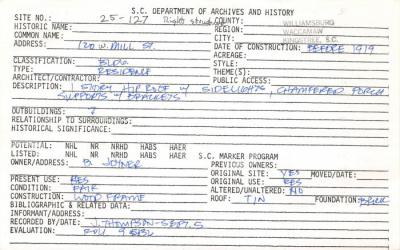 S.C. DEPARTMENT OF ARCHIVES AND HISTORY
SITE NO.: 25-127 Right structure COUNTY: WILLIAMSBURG
HISTORIC NAME: REGION: WACCAMAW
COMMON NAME: CITY: KINGSTREE, S.C.
ADDRESS: 120 W. MILL ST. DATE OF CONSTRUCTION: BEFORE 1919
ACREAGE:
CLASSIFICATION: BLDG STYLE:
TYPE: RESIDENCE THEME(S):
ARCHITECT/CONTRACTOR: PUBLIC ACCESS:
DESCRIPTION: 1 STORY HIP ROOF W/ SIDELIGHTS, CHAMFERED PORCH
SUPPORTS W/ BRACKETS
OUTBUILDINGS: ?
RELATIONSHIP TO SURROUNDINGS:
HISTORICAL SIGNIFICANCE:
POTENTIAL: NHL NR NRHD HABS HAER
LISTED: NHL NR NRHD HABS HAER S.C. MARKER PROGRAM
OWNER/ADDRESS: B. JOYNER PREVIOUS OWNERS:
ORIGINAL SITE: YES MOVED/DATE:
PRESENT USE: RES ORIGINAL USE: RES
CONDITION: FAIR ALTERED/UNALTERED: NO
CONSTRUCTION: WOOD FRAME ROOF: TIN FOUNDATION: BRICK
BIBLIOGRAPHIC & RELATED DATA:
INFORMANT/ADDRESS:
RECORDED BY/DATE: J. THOMPSON - SEPT.
EVALUATION: ROLL 9